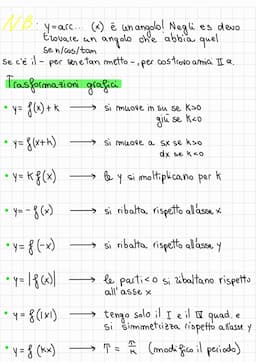 N.B: y=arc... (x) è un angolo! Negli es devo
trovare un angolo che abbia quel
sen/cos/tan
se c'è il - per sen e tan metto -, per cos
• Trasformazioni grafici
• y= f(x)+k → si muove in su se k>0
giù se k<0
• y= f(x+h) → si muove a sx se k>0
dx se k<0
• y= k f(x) → le y si moltiplicano per k
• y=- f(x) → si ribalta rispetto all'asse x
• y= f(-x) → si ribalta rispetto all'asse y
• y= |f(x)| → le parti <0 si ribaltano rispetto
all'asse x
• y= f(|x|) → tengo solo il I e il IV quad. e
si simmetrizza rispetto all'asse y
• y= f(kx) → T= π/k (modifico il periodo)